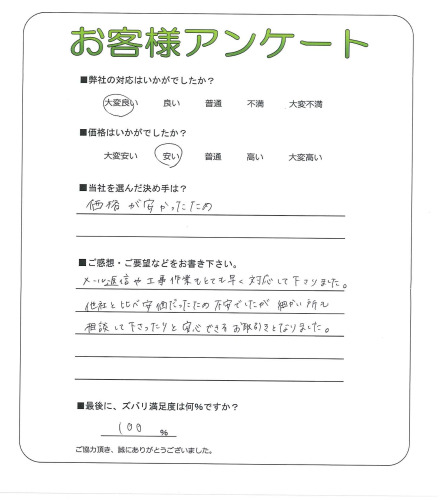 お客様アンケート
■弊社の対応はいかがでしたか？
大変良い 良い 普通 不満 大変不満
■価格はいかがでしたか？
大変安い 安い 普通 高い 大変高い
■当社を選んだ決め手は？
価格が安かったため
■ご感想・ご要望などをお書き下さい。
メール返信や工事作業もとても早く対応して下さりました。
他社と比べ安価だったため不安でしたが細かい所も
相談して下さったりと安心できるお取引きとなりました。
■最後に、ズバリ満足度は何％ですか？
100 %
ご協力頂き、誠にありがとうございました。